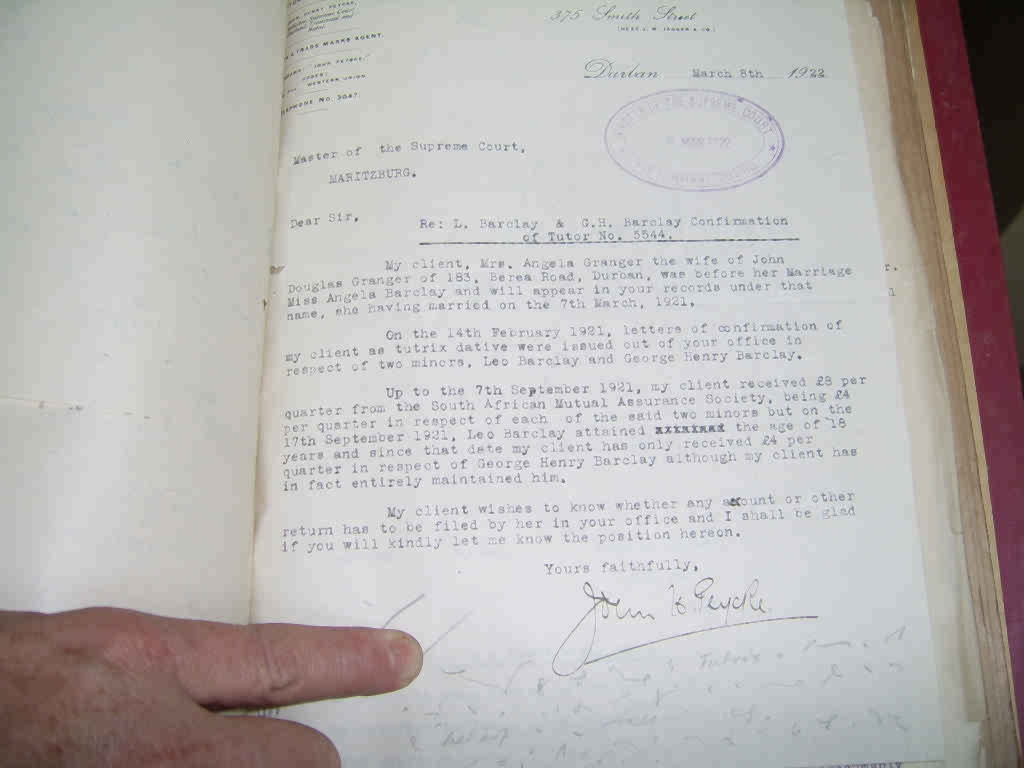 HENRY PEYCKE,
Supreme Court
& TRADE MARKS AGENT.
"JOHN PEYCKE,"
CODES:
WESTERN UNION
TELEPHONE No. 3047.
375 Smith Street
(NEXT J. W. JAGGER & CO.)
Durban March 8th 1922
MASTER OF THE SUPREME COURT
Master of the Supreme Court,
MARITZBURG.
Dear Sir,
Re: L. Barclay & G.H. Barclay Confirmation
of Tutor No. 5544.
My client, Mrs. Angela Granger the wife of John
Douglas Granger of 183, Berea Road, Durban, was before her Marriage
Miss Angela Barclay and will appear in your records under that
name, she having married on the 7th March, 1921.
On the 14th February 1921, letters of confirmation of
my client as tutrix dative were issued out of your office in
respect of two minors, Leo Barclay and George Henry Barclay.
Up to the 7th September 1921, my client received £8 per
quarter from the South African Mutual Assurance Society, being £4
per quarter in respect of each of the said two minors but on the
17th September 1921, Leo Barclay attained the age of 18
years and since that date my client has only received £4 per
quarter in respect of George Henry Barclay although my client has
in fact entirely maintained him.
My client wishes to know whether any account or other
return has to be filed by her in your office and I shall be glad
if you will kindly let me know the position hereon.
Yours faithfully,
John H. Peycke
Tutrix